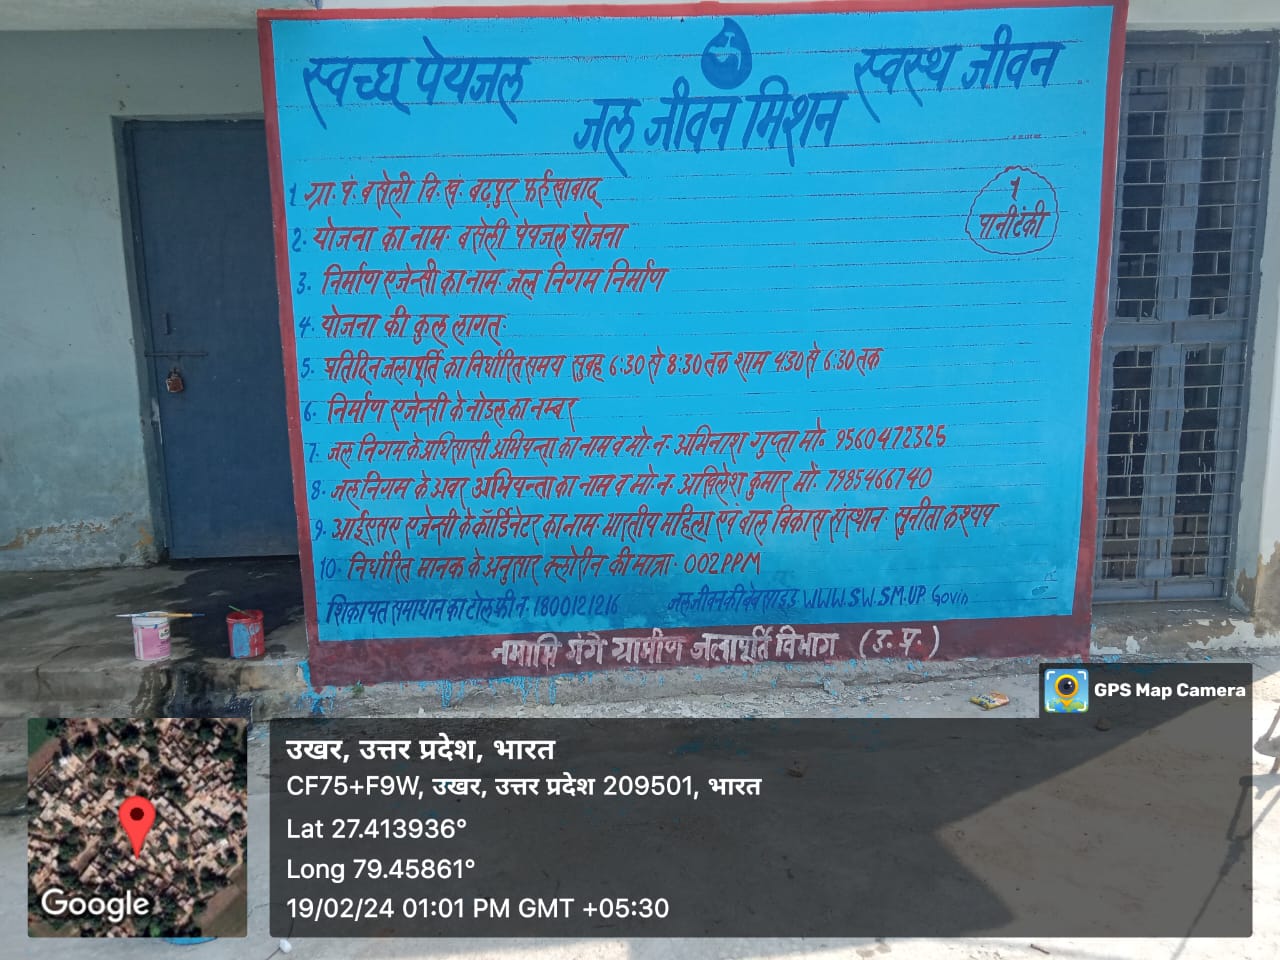 स्वच्छ पेयजल
स्वस्थ जीवन
जल जीवन मिशन
1 ग्रा. पं. बसेली वि. खं. बढ़पुर फर्रुखाबाद
1
पानी टंकी
2. योजना का नाम: बसेली पेयजल योजना
3. निर्माण एजेन्सी का नाम: जल निगम निर्माण
4. योजना की कुल लागत:
5. प्रतिदिन जलापूर्ति का निर्धारित समय सुबह 6:30 से 8:30 तक शाम 4:30 से 6:30 तक
6. निर्माण एजेन्सी के नोडल का नम्बर
7. जल निगम के अधिसासी अभियन्ता का नाम व मो. न. अमिनाश गुप्ता मो. 9560472325
8. जल निगम के अवर अभियन्ता का नाम व मो. न. अखिलेश कुमार मो. 7985466740
9. आईएसए एजेन्सी के कॉर्डिनेटर का नाम: भारतीय महिला एवं बाल विकास संस्थान सुनीता कश्यप
10. निर्धारित मानक के अनुसार क्लोरीन की मात्रा. 002 PPM
शिकायत समाधान का टोल फ्री न. 1800121216 जल जीवन की वेबसाइड WWW.SW.SM.UP. Govin
नमामि गंगे ग्रामीण जलापूर्ति विभाग (उ. प्र.)
GPS Map Camera
उखर, उत्तर प्रदेश, भारत
CF75+F9W, उखर, उत्तर प्रदेश 209501, भारत
Lat 27.413936°
Long 79.45861°
19/02/24 01:01 PM GMT +05:30
Google